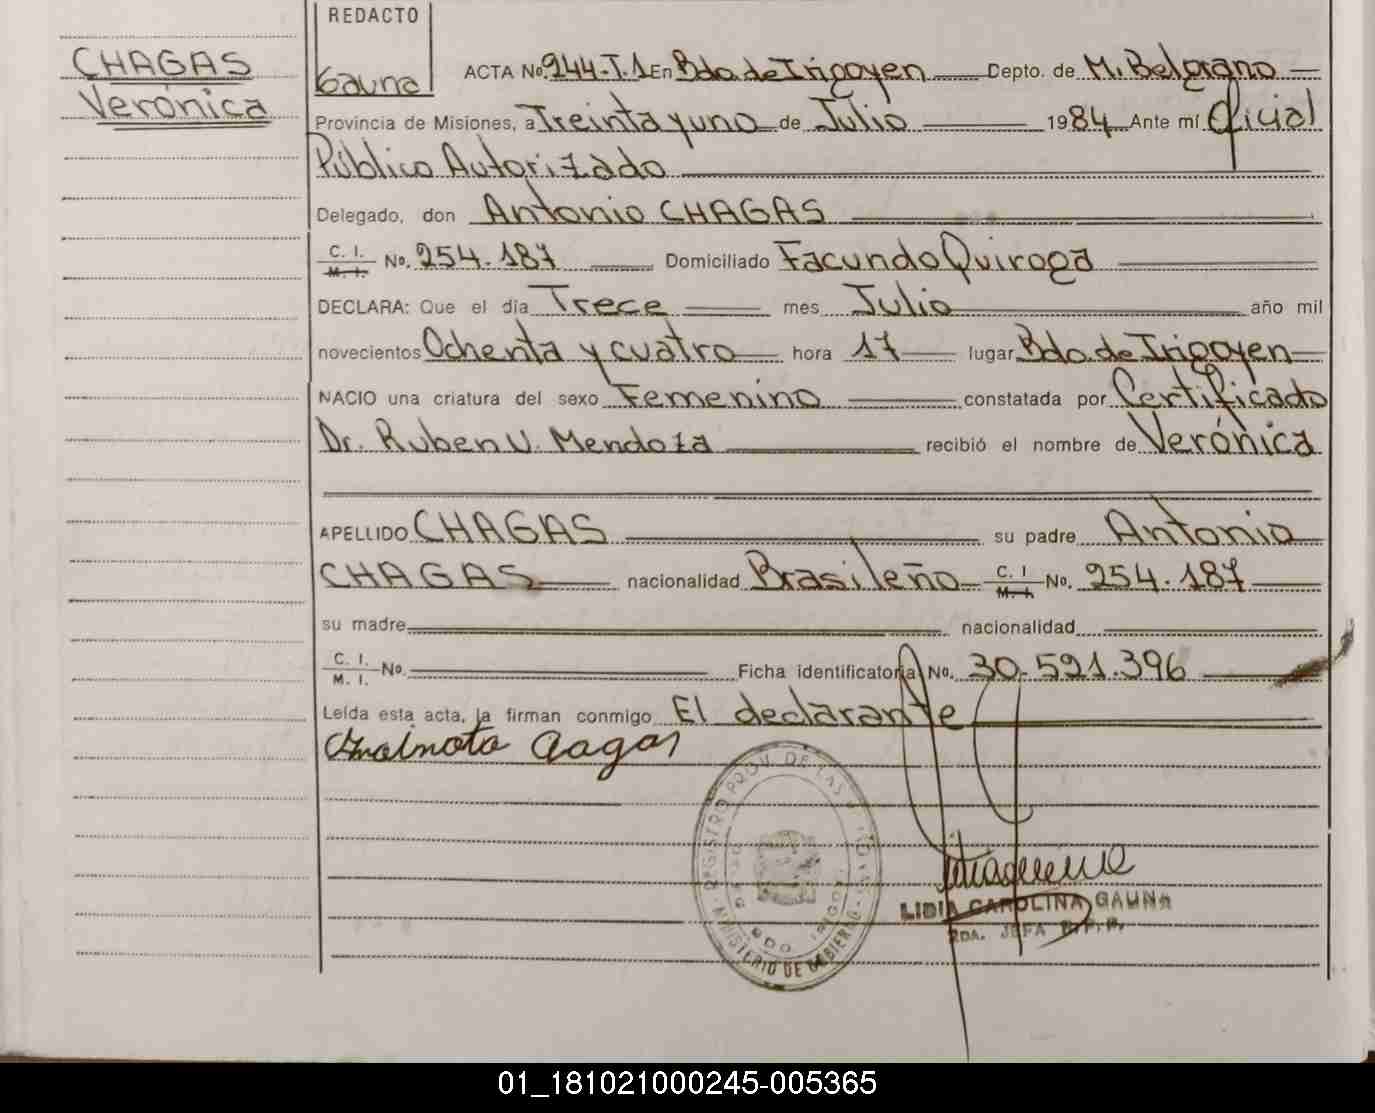 REDACTO
Gauna
CHAGAS
Verónica
ACTA No. 244-T.1 En Bdo. de Irigoyen Depto. de M. Belgrano
Provincia de Misiones, a Treinta y uno de Julio 1984 Ante mí Oficial
Público Autorizado
Delegado, don Antonio CHAGAS
C. I. M. I. No. 254.187 Domiciliado Facundo Quiroga
DECLARA: Que el día Trece mes Julio año mil
novecientos Ochenta y cuatro hora 17 lugar Bdo. de Irigoyen
NACIO una criatura del sexo Femenino constatada por Certificado
Dr. Ruben V. Mendoza recibió el nombre de Verónica
APELLIDO CHAGAS su padre Antonio
CHAGAS nacionalidad Brasileño C. I M. I. No. 254.187
su madre nacionalidad
C. I. M. I. No. Ficha identificatoria No. 30.591.396
Leída esta acta, la firman conmigo El declarante
REGISTRO PROV. DE LAS
MINISTERIO DE GOBIERNO
BDO. IRIGOY.
LIDIA CAROLINA GAUNA
2DA. JEFA R.P.P.
01_181021000245-005365